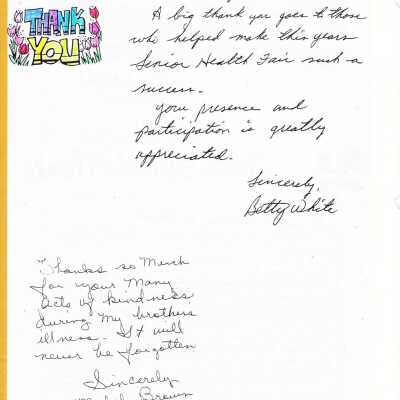 THANK
YOU
A big thank you goes to those
who helped make this years
Senior Health Fair such a
success.
your presence and
participation is greatly
appreciated.
Sincerely,
Betty White
Thanks so Much
for your Many
acts of kindness
during My brothers
illness. It will
never be forgotten
Sincerely
Brown